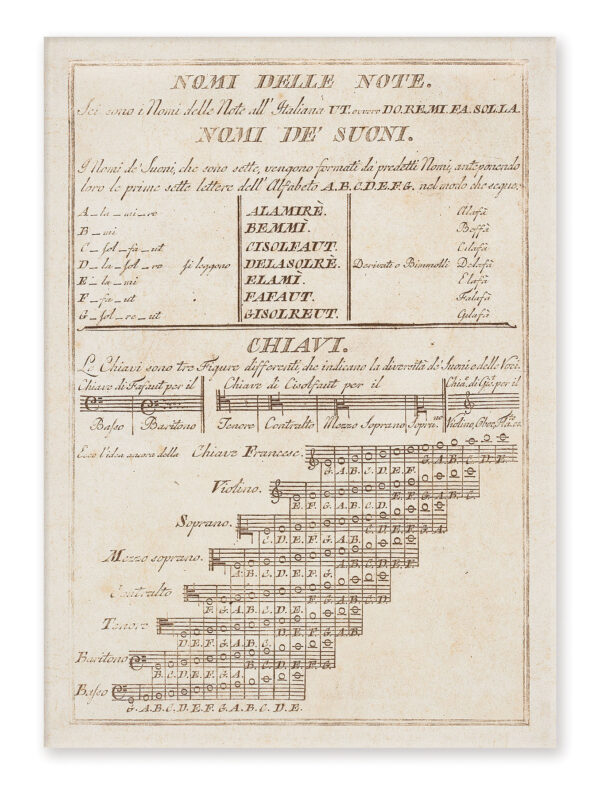 NOMI DELLE NOTE.
Sei sono i Nomi delle Note all' Italiana UT. ovvero DO.RE.MI.FA.SOL.LA.
NOMI DE' SUONI.
I Nomi de' Suoni, che sono sette, vengono formati da predetti Nomi, anteponendo
loro le prime sette lettere dell' Alfabeto A.B.C.D.E.F.G. nel modo che segue.
A_la_mi_re ALAMIRÈ. Alafà
B_mi BEMMÌ. Beffà
C_sol_fa_ut CISOLFAUT. Cilafà
D_la_sol_re si leggono DELASOLRÈ. Derivati o Bimmolli Delafà
E_la_mi ELAMÌ. Elafà
F_fa_ut FAFAUT. Falafà
G_sol_re_ut GISOLREUT. Gilafà
CHIAVI.
Le Chiavi sono tre Figure differenti, che indicano la diversità de' Suoni e delle Voci.
Chiave di Fafaut per il Chiave di Cisolfaut per il Chia. di Gis. per il
Basso Baritono Tenore Contralto Mezzo Soprano Sopra.no Violino, Oboe,
Ecco l'idea ancora della Chiave Francese.
G.A.B.C.D.E.F. G.A.B.C.D.E.
Violino.
E.F.G.A.B.C.D. E.F.G.A.B.C.
Soprano.
C.D.E.F.G.A.B. C.D.E.F.G.A.
Mezzo soprano.
A.B.C.D.E.F.G. A.B.C.D.E.F.
Contralto
F.G.A.B.C.D.E. F.G.A.B.C.D.
Tenore
D.E.F.G.A.B.C. D.E.F.G.A.B.
Baritono
B.C.D.E.F.G.A. B.C.D.E.F.G.
Basso
G.A.B.C.D.E.F.G.A.B.C.D.E.